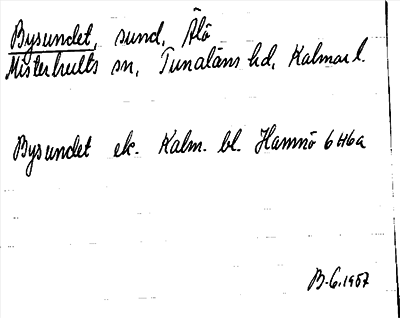 Bysundet, sund, Älö
Misterhults sn, Tunaläns hd, Kalmar l.
Bysundet ek. Kalm. bl. Hamnö 6 H6a
B.G. 1957